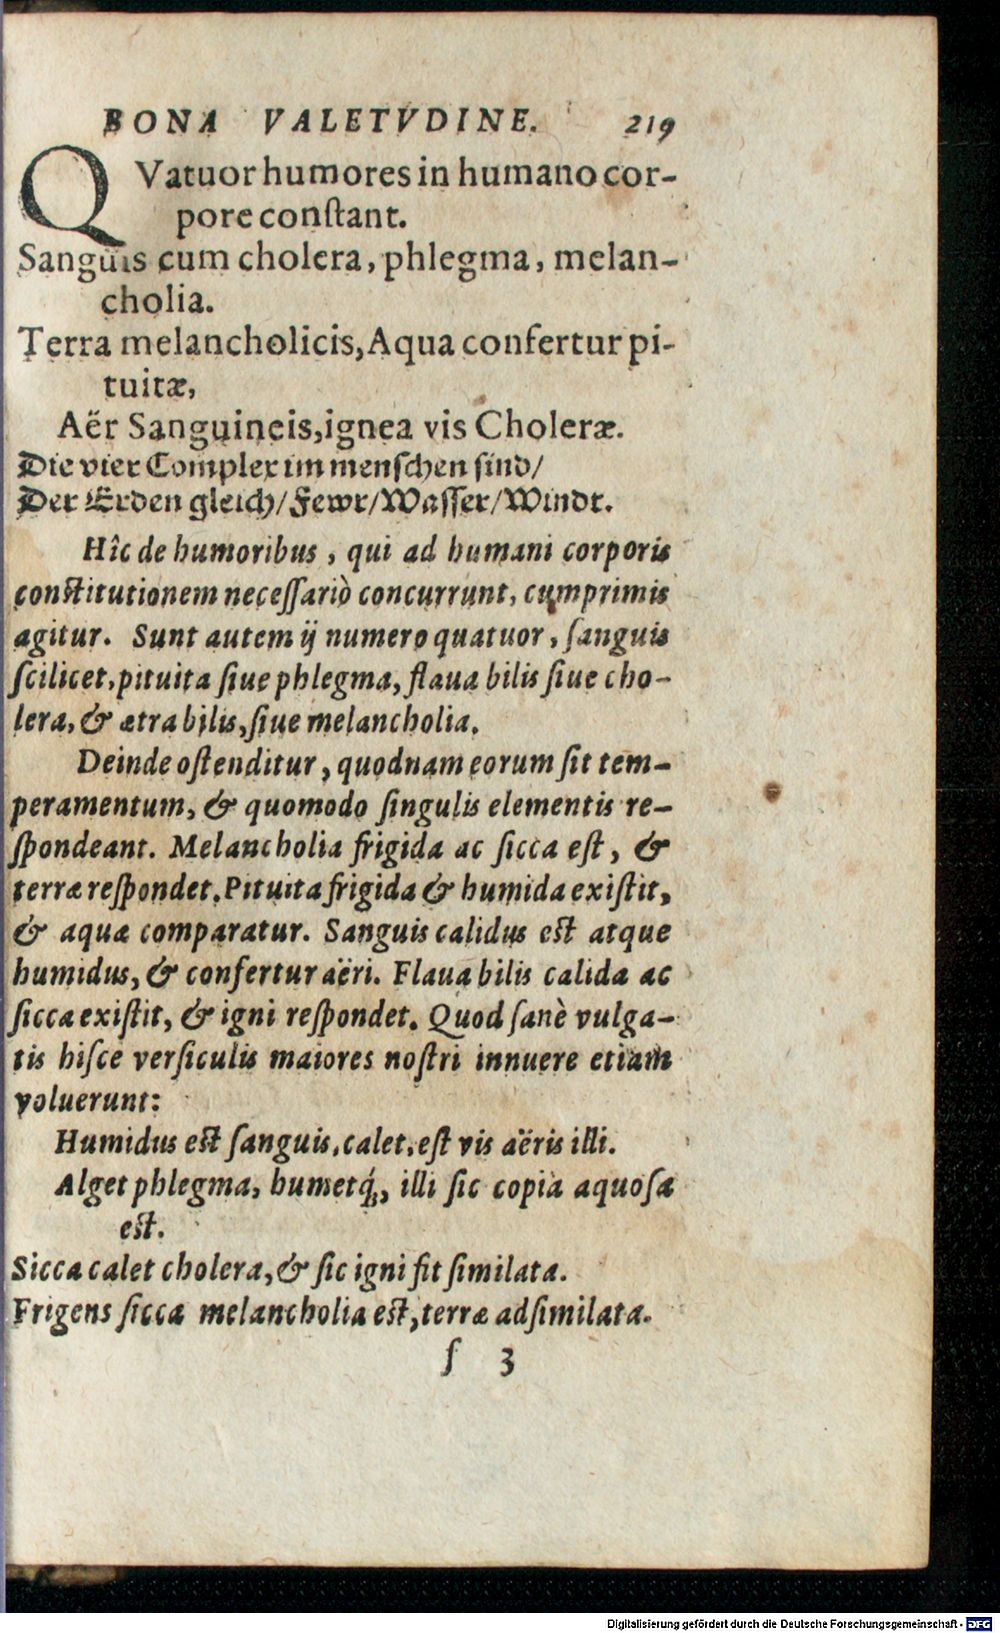 BONA VALETVDINE. 219
QVatuor humores in humano cor-
pore conſtant.
Sanguis cum cholera, phlegma, melan-
cholia.
Terra melancholicis, Aqua confertur pi-
tuitæ,
Aër Sanguineis, ignea vis Choleræ.
Die vier Complex im menſchen ſind/
Der Erden gleich/Fewr/Waſſer/Windt.
Hîc de humoribus, qui ad humani corporis
conſtitutionem neceſſariò concurrunt, cumprimis
agitur. Sunt autem ij numero quatuor, ſanguis
ſcilicet, pituita ſiue phlegma, flaua bilis ſiue cho-
lera, & atra bilis, ſiue melancholia.
Deinde oſtenditur, quodnam eorum ſit tem-
peramentum, & quomodo ſingulis elementis re-
ſpondeant. Melancholia frigida ac ſicca eſt, &
terræ reſpondet. Pituita frigida & humida exiſtit,
& aquæ comparatur. Sanguis calidus eſt atque
humidus, & confertur aëri. Flaua bilis calida ac
ſicca exiſtit, & igni reſpondet. Quod ſanè vulga-
tis hiſce verſiculis maiores noſtri innuere etiam
voluerunt:
Humidus eſt ſanguis, calet, eſt vis aëris illi.
Alget phlegma, humetq́;, illi ſic copia aquoſa
eſt.
Sicca calet cholera, & ſic igni fit ſimilata.
Frigens ſicca melancholia eſt, terræ adſimilata.
ſ 3
Digitalisierung gefördert durch die Deutsche Forschungsgemeinschaft - DFG